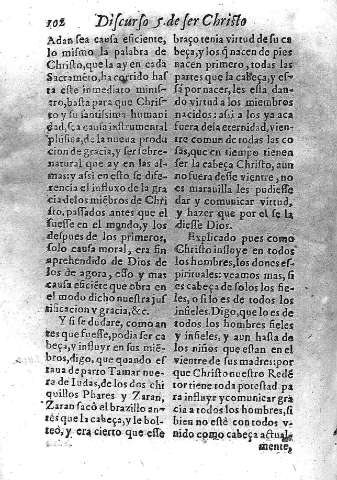 102 Discurso 5. de ser Christo
Adan sea causa eficiente,
lo mismo la palabra de
Christo, que la ay en cada
Sacramēto, ha corrido hasta
ta este inmediato minis-
tro, basta para que Chris-
to y su santissima humani
dad, sea causa instrumental
phisica, de la nueua produc
cion de gracia, y ser sobre-
natural que ay en las al-
mas: y assi en esto se dife-
rencia el influxo de la gra
cia de los miēbros de Chri
sto, passados antes que el
fuesse en el mondo, y los
despues de los primeros,
solo causa moral, era fin
aprehendido de Dios de
los de agora, esso y mas
causa eficiēte que obra en
el modo dicho nuestra jus
tificacion y gracia, &c.
Y si se dudare, como an
tes que fuesse, podia ser ca
beça, y influyr en sus mie-
bros, digo, que quando es
taua de parto Tamar nue-
ra de Iudas, de los dos chi
quillos Phares y Zaran,
Zaran sacò el brazillo an-
tes que la cabeça, y le bol-
teò, y era cierto que esse
braço tenia virtud de su ca
beça, y los q̄ nacen de pies
nacen primero, todas las
partes que la cabeça, y es-
sa por nacer, les esta dan-
do virtud a los miembros
nacidos: assi a los ya acà
fuera dela eternidad, vien-
tre comun de todas las co
sas, que en tiempo tienen
ser la cabeça Christo, aun
no fuera desse vientre, no
es marauilla les pudiesse
dar y comunicar virtud,
y hazer que por el se la
diesse Dios.
Explicado pues como
Christo influye en todos
los hombres, los dones es-
pirituales: veamos mas, si
es cabeça de solos los fie-
les, o si lo es de todos los
infieles. Digo, que lo es de
todos los hombres fieles
y infieles, y aun hasta de
los niños que estan en el
vientre de sus madres: por
que Christo nuestro Redē
tor tiene toda potestad pa
ra influyr y comunicar gra
cia a todos los hombres, si
bien no estè con todos v-
nido como cabeça actual-
mente,